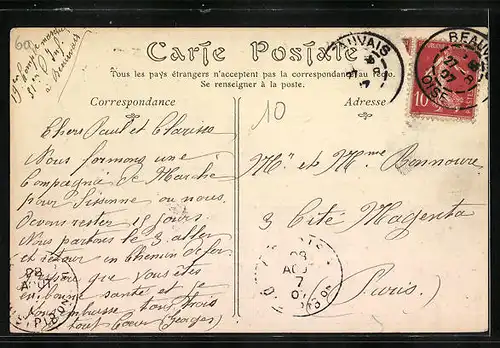 60
19em Compagnie marche
51em Inf
à Beauvais
Carte Postale
Tous les pays étrangers n'acceptent pas la correspondance au recto.
Se renseigner à la poste.
Correspondance
Adresse
10
Chers Paul et Clarisse
Nous formons une
Compagnie de Marche
pour Sisonne ou nous
devons rester 15 jours.
Nous partons le 3 aller
et retour en Chemin de fer
J'espère que vous êtes
en bonne santé et je
vous embrasse tous trois
tout Coeur (Georges)
Mr et Mme Bonnoure
3 Cité Magenta
(Paris)
BEAUVAIS
BEAUVAIS
27-8
07
OISE
10
PARIS
08
AOU
7
07